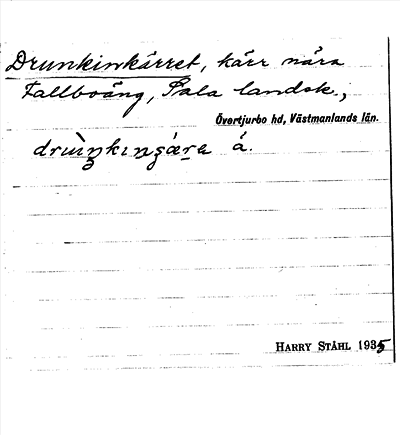 Drunkinkärret, kärr nära
Tallboäng, Sala landsk.,
Övertjurbo hd, Västmanlands län.
å.
HARRY STÅHL 1935